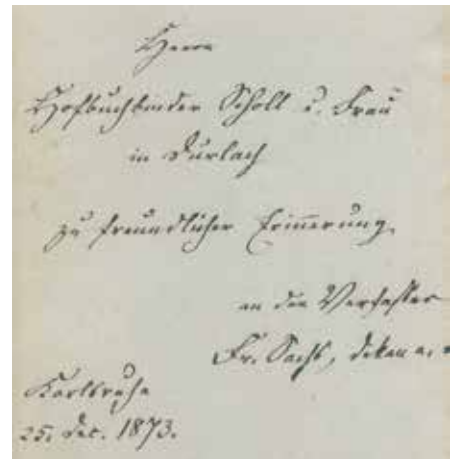 Herrn
Hofbuchbinder Scholl u. Frau
in Durlach
zu freundlicher Erinnerung
an den Verfasser
Fr. Sachs, Dekan a.
Karlsruhe
25. Dec. 1873.